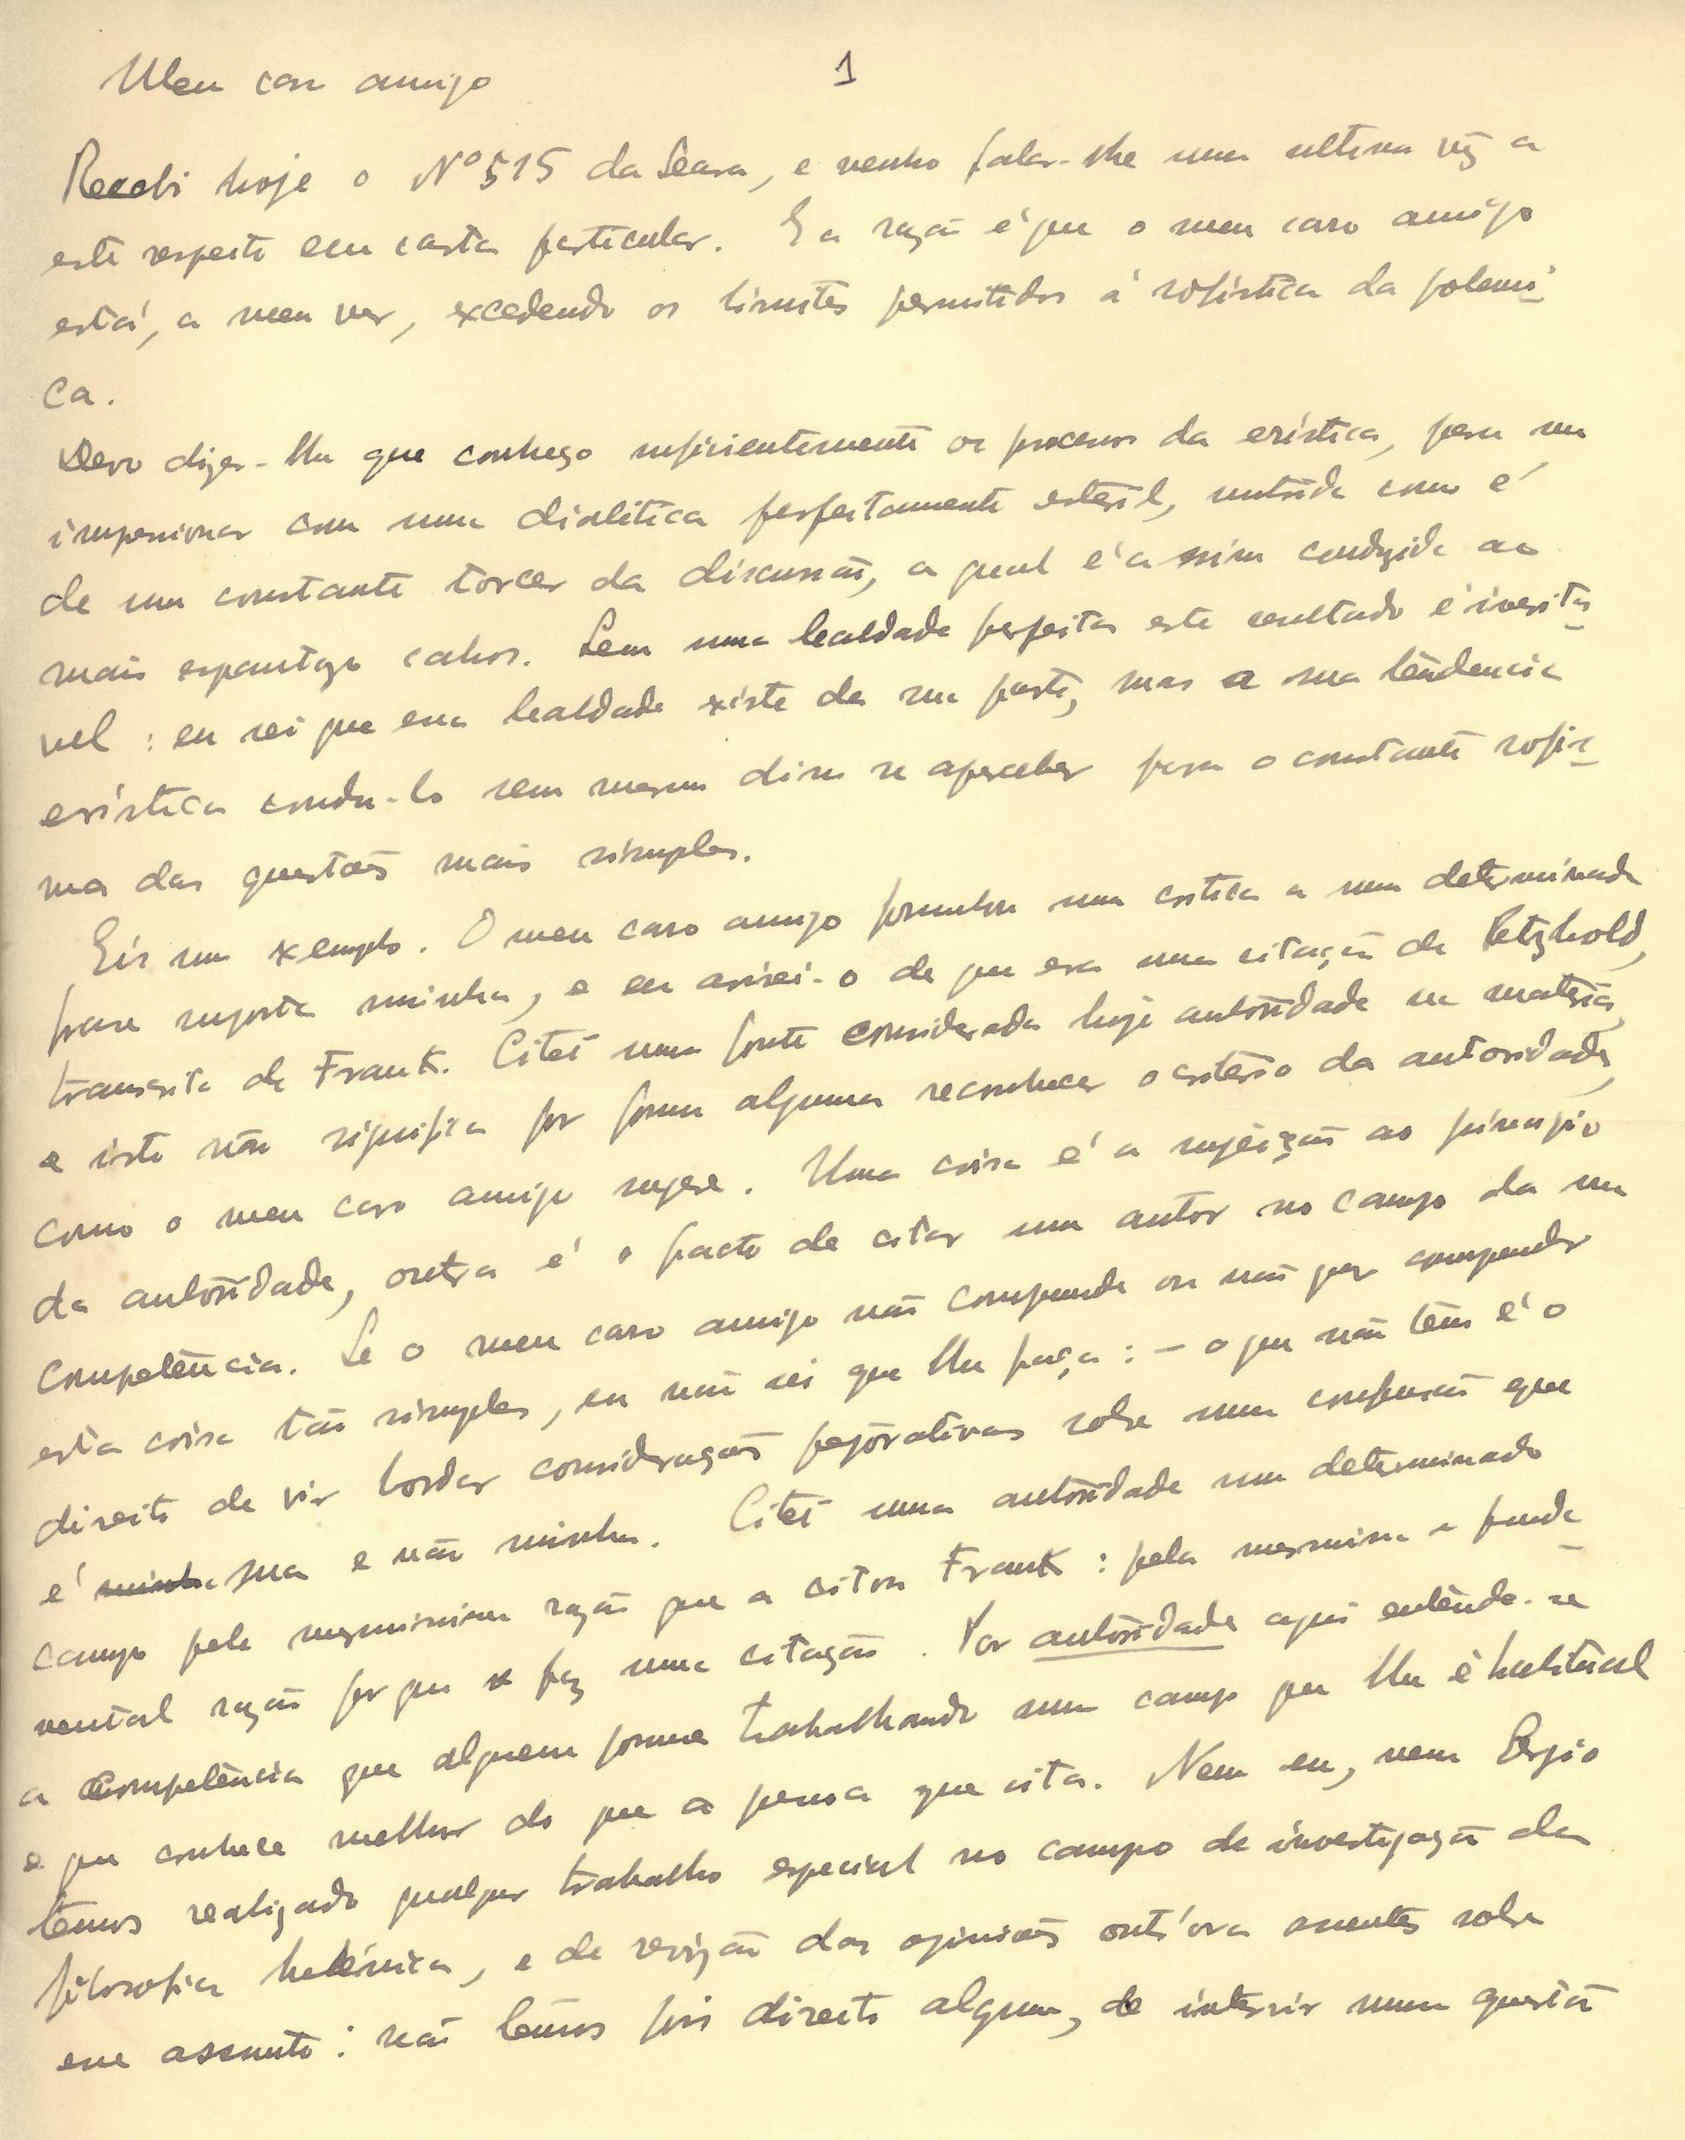 Meu caro amigo
1
Recebi hoje o Nº 515 da Seara, e venho falar-lhe uma ultima vez a
este respeito em carta particular. E a razão é que o meu caro amigo
está, a meu ver, excedendo os limites permitidos á sofistica da polemi-
ca.
Devo dizer-lhe que conheço suficientemente os processos da erística, para me
impressionar com uma dialética perfeitamente estéril, nutrida como é
de um constante torcer da discussão, a qual é assim conduzida ao
mais espantoso cahos. Sem uma lealdade perfeita este resultado é inevitá-
vel: eu sei que essa lealdade existe da sua parte, mas a sua tendência
erística condu-lo sem mesmo disso se aperceber para o constante sofis-
ma das questões mais simples.
Eis um exemplo. O meu caro amigo formulou uma critica a uma determinada
frase suposta minha, e eu avisei-o de que era uma citação de Petzhold,
transcrita de Frank. Citei uma fonte considerada hoje autoridade na matéria,
e isto não significa por forma alguma reconhecer o critério da autoridade,
como o meu caro amigo sugere. Uma coisa é a sujeição ao principio
da autoridade, outra é o facto de citar um autor no campo da sua
competência. Se o meu caro amigo não compreende ou não quer compreender
esta coisa tão simples, eu não sei que lhe faça: - o que não tem é o
direito de vir bordar considerações pejorativas sobre uma confusão que
é minha sua e não minha. Citei uma autoridade num determinado
campo pela mesmissima razão que a citou Frank: pela mesmissima e funda-
mental razão por que se faz uma citação. Por autoridade aqui entende-se
a competência que alguem possue trabalhando num campo que lhe é habitual
e que conhece melhor do que a pessoa que cita. Nem eu, nem Sergio
temos realizado qualquer trabalho especial no campo de investigação da
filosofia helénica, e de revizão das opiniões outr'ora assentes sobre
esse assunto: não temos pois direito algum, de intervir numa questão